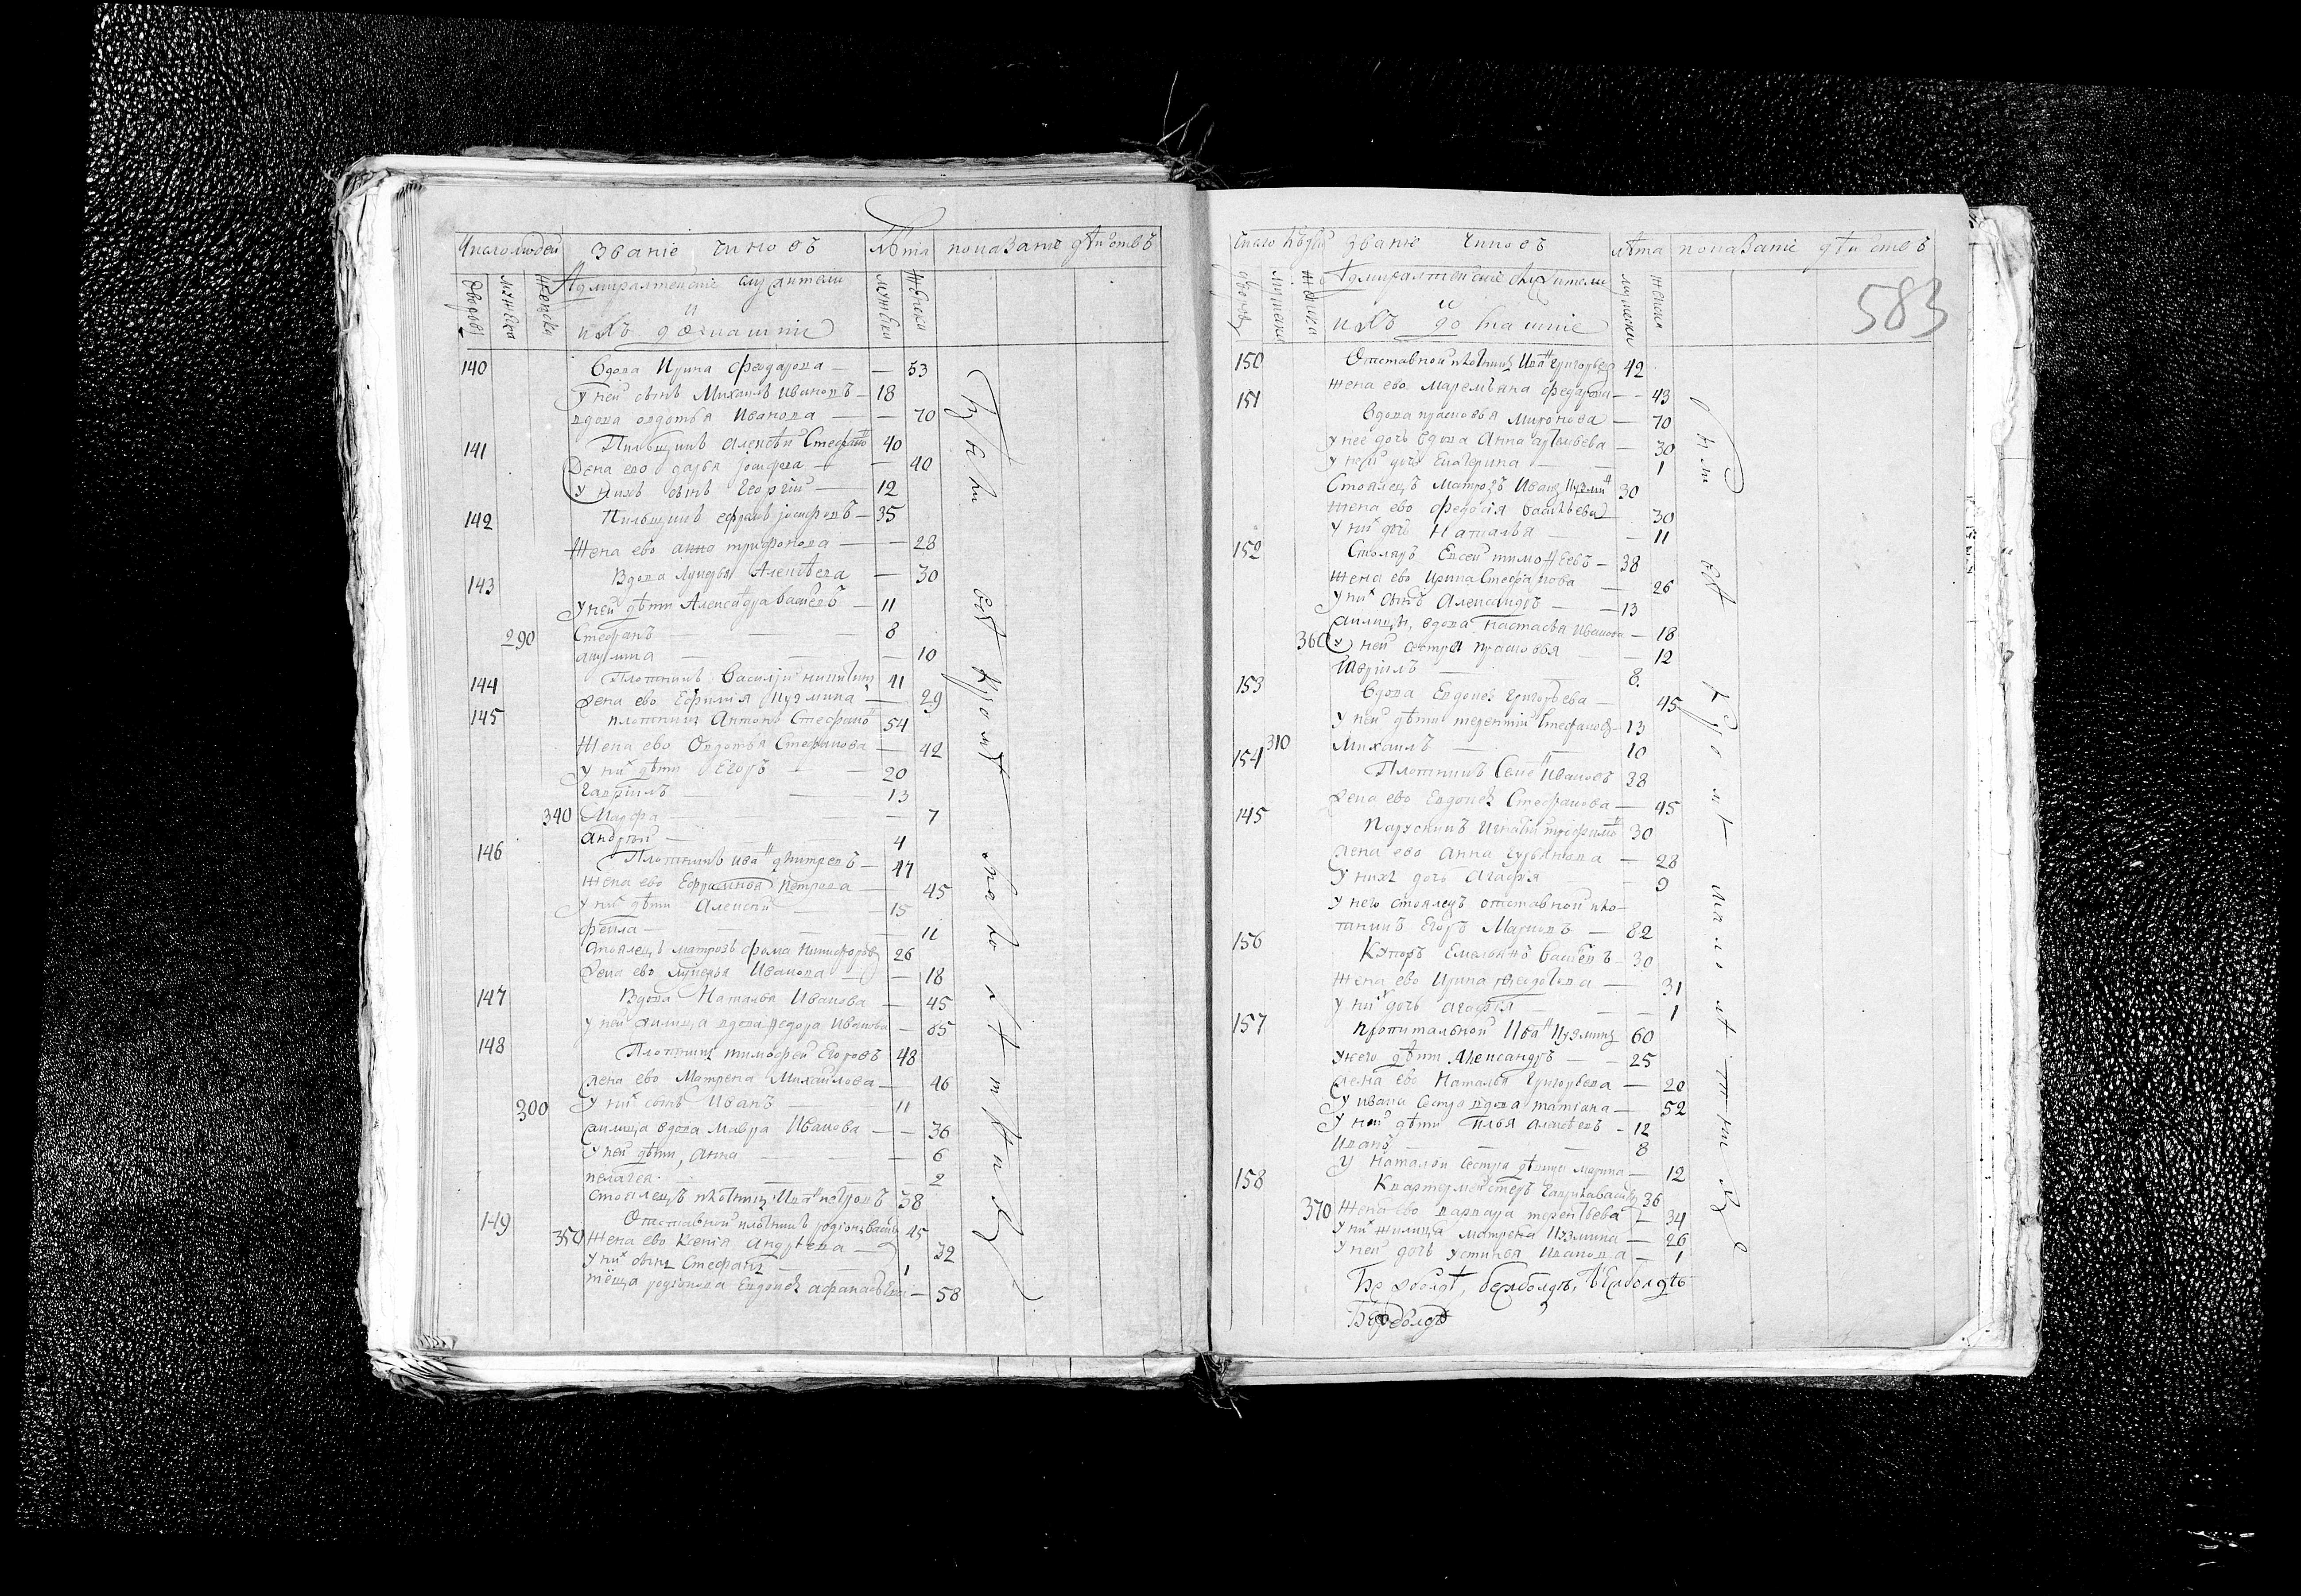 Число людей званіе чиновъ лѣта показаніе дѣйствъ
дворовъ мужеска женска Адмиралтейскіе служители мужеска женска
и
ихъ домашніе
140 вдова Ирина Феодарова — — 53
у ней сынъ Михаилъ Ивановъ — 18
вдова овдотья Иванова — — 70
141 Пильщикъ алексѣй Стефано 40
Жена ево дарья — — 40
у нихъ сынъ Георгіи — 12
142 Пильщикъ ефремъ іосифовъ — 35
Жена ево анна трифонова — — 28
143 Вдова Лукерья Алексѣева — 30
у ней дѣти Александра — 11
290 Стефанъ — — 8
акулина — — — 10
144 Плотникъ Василіи никитинъ 41
Жена ево Ефимія Кузмина — 29
145 плотникъ Антонъ Стефано 54
Жена ево Овдотья Стефанова — 42
у них дѣти Егоръ — — 20
Гавріилъ — — 13
340 Марфа — — 7
Андрей — — 4
146 Плотникъ Иван дмитревъ — 47
Жена ево Петрова — 45
у них дѣти Алексѣй — 15
Фекла — — — 11
стоялецъ матрозъ Фома Никифоровъ 26
Жена ево лукерья Иванова — — 18
147 Вдова Наталья Иванова — 45
у ней жилица вдова Федора Иванова — 65
148 Плотникъ тимофей Егоровъ 48
Жена ево Матрена Михаилова — 46
300 у них сынъ Иванъ — 11
жилица вдова мавра Иванова — — 36
у ней дѣти, Анна — — — 6
пелагея — — 2
стоялецъ плотникъ Иван петровъ 38
149 Отставной плотникъ родіонъ 45
350 Жена ево Ксенія Андреева — 32
у них сынъ Стефанъ — 1
тёща родіонова Евдокея афанасьева — 58
583
число людей званіе чиновъ лѣта показаніе дѣйствъ
дворовъ мужеска женска Адмиралтейскіе служители мужеска женска
и
ихъ домашніе
150 Отставной плотникъ Иван Григорьев 42
Жена ево Маремьяна федарова — — 43
151 Вдова прасковья Миронова — 70
у нее дочь вдова Анна — 30
у ней дочь Екатерина — 1
Стоялецъ Матрозъ Иванъ Кузмин 30
Жена ево федосія васильева 30
у них дочь Наталья — 11
152 Столяръ Евсей тимофеевъ — 38
Жена ево Ирина Стефанова — 26
у них сынъ Александръ — — 13
жилица, вдова Настасья Иванова — 18
360 у ней сестра прасковья — 12
Гавріилъ — — 8
153 Вдова Евдокея Григорьева — 45
у ней дѣти терентіи Стефановъ — 13
310 Михаилъ — — 10
154 Плотникъ Семен Ивановъ 38
Жена ево Евдокея Стефанова — 45
145 Парусникъ Игнатіи трофимо 30
Жена ево Анна — 28
у нихъ дочь Агафія — 9
у него стоялецъ отставной пло-
тникъ Егоръ Марковъ — 82
156 Купоръ Емельянъ — 30
Жена ево Ирина — 31
у них дочь агафія — — 1
157 пропитальной Иван Кузминъ 60
унего дѣти Александръ — — 25
Жена ево Наталья Григорьева — 20
У ивана Сестра вдова татіана — 52
у ней дѣти Илья алексѣевъ — 12
Иванъ — — 8
у Натальи Сестра дѣвица марина — 12
158 Квартермейстеръ 36
370 Жена ево варвара терентьева — 34
у них жилица матрена Кузмина — 26
у ней дочь устинья Иванова — 1